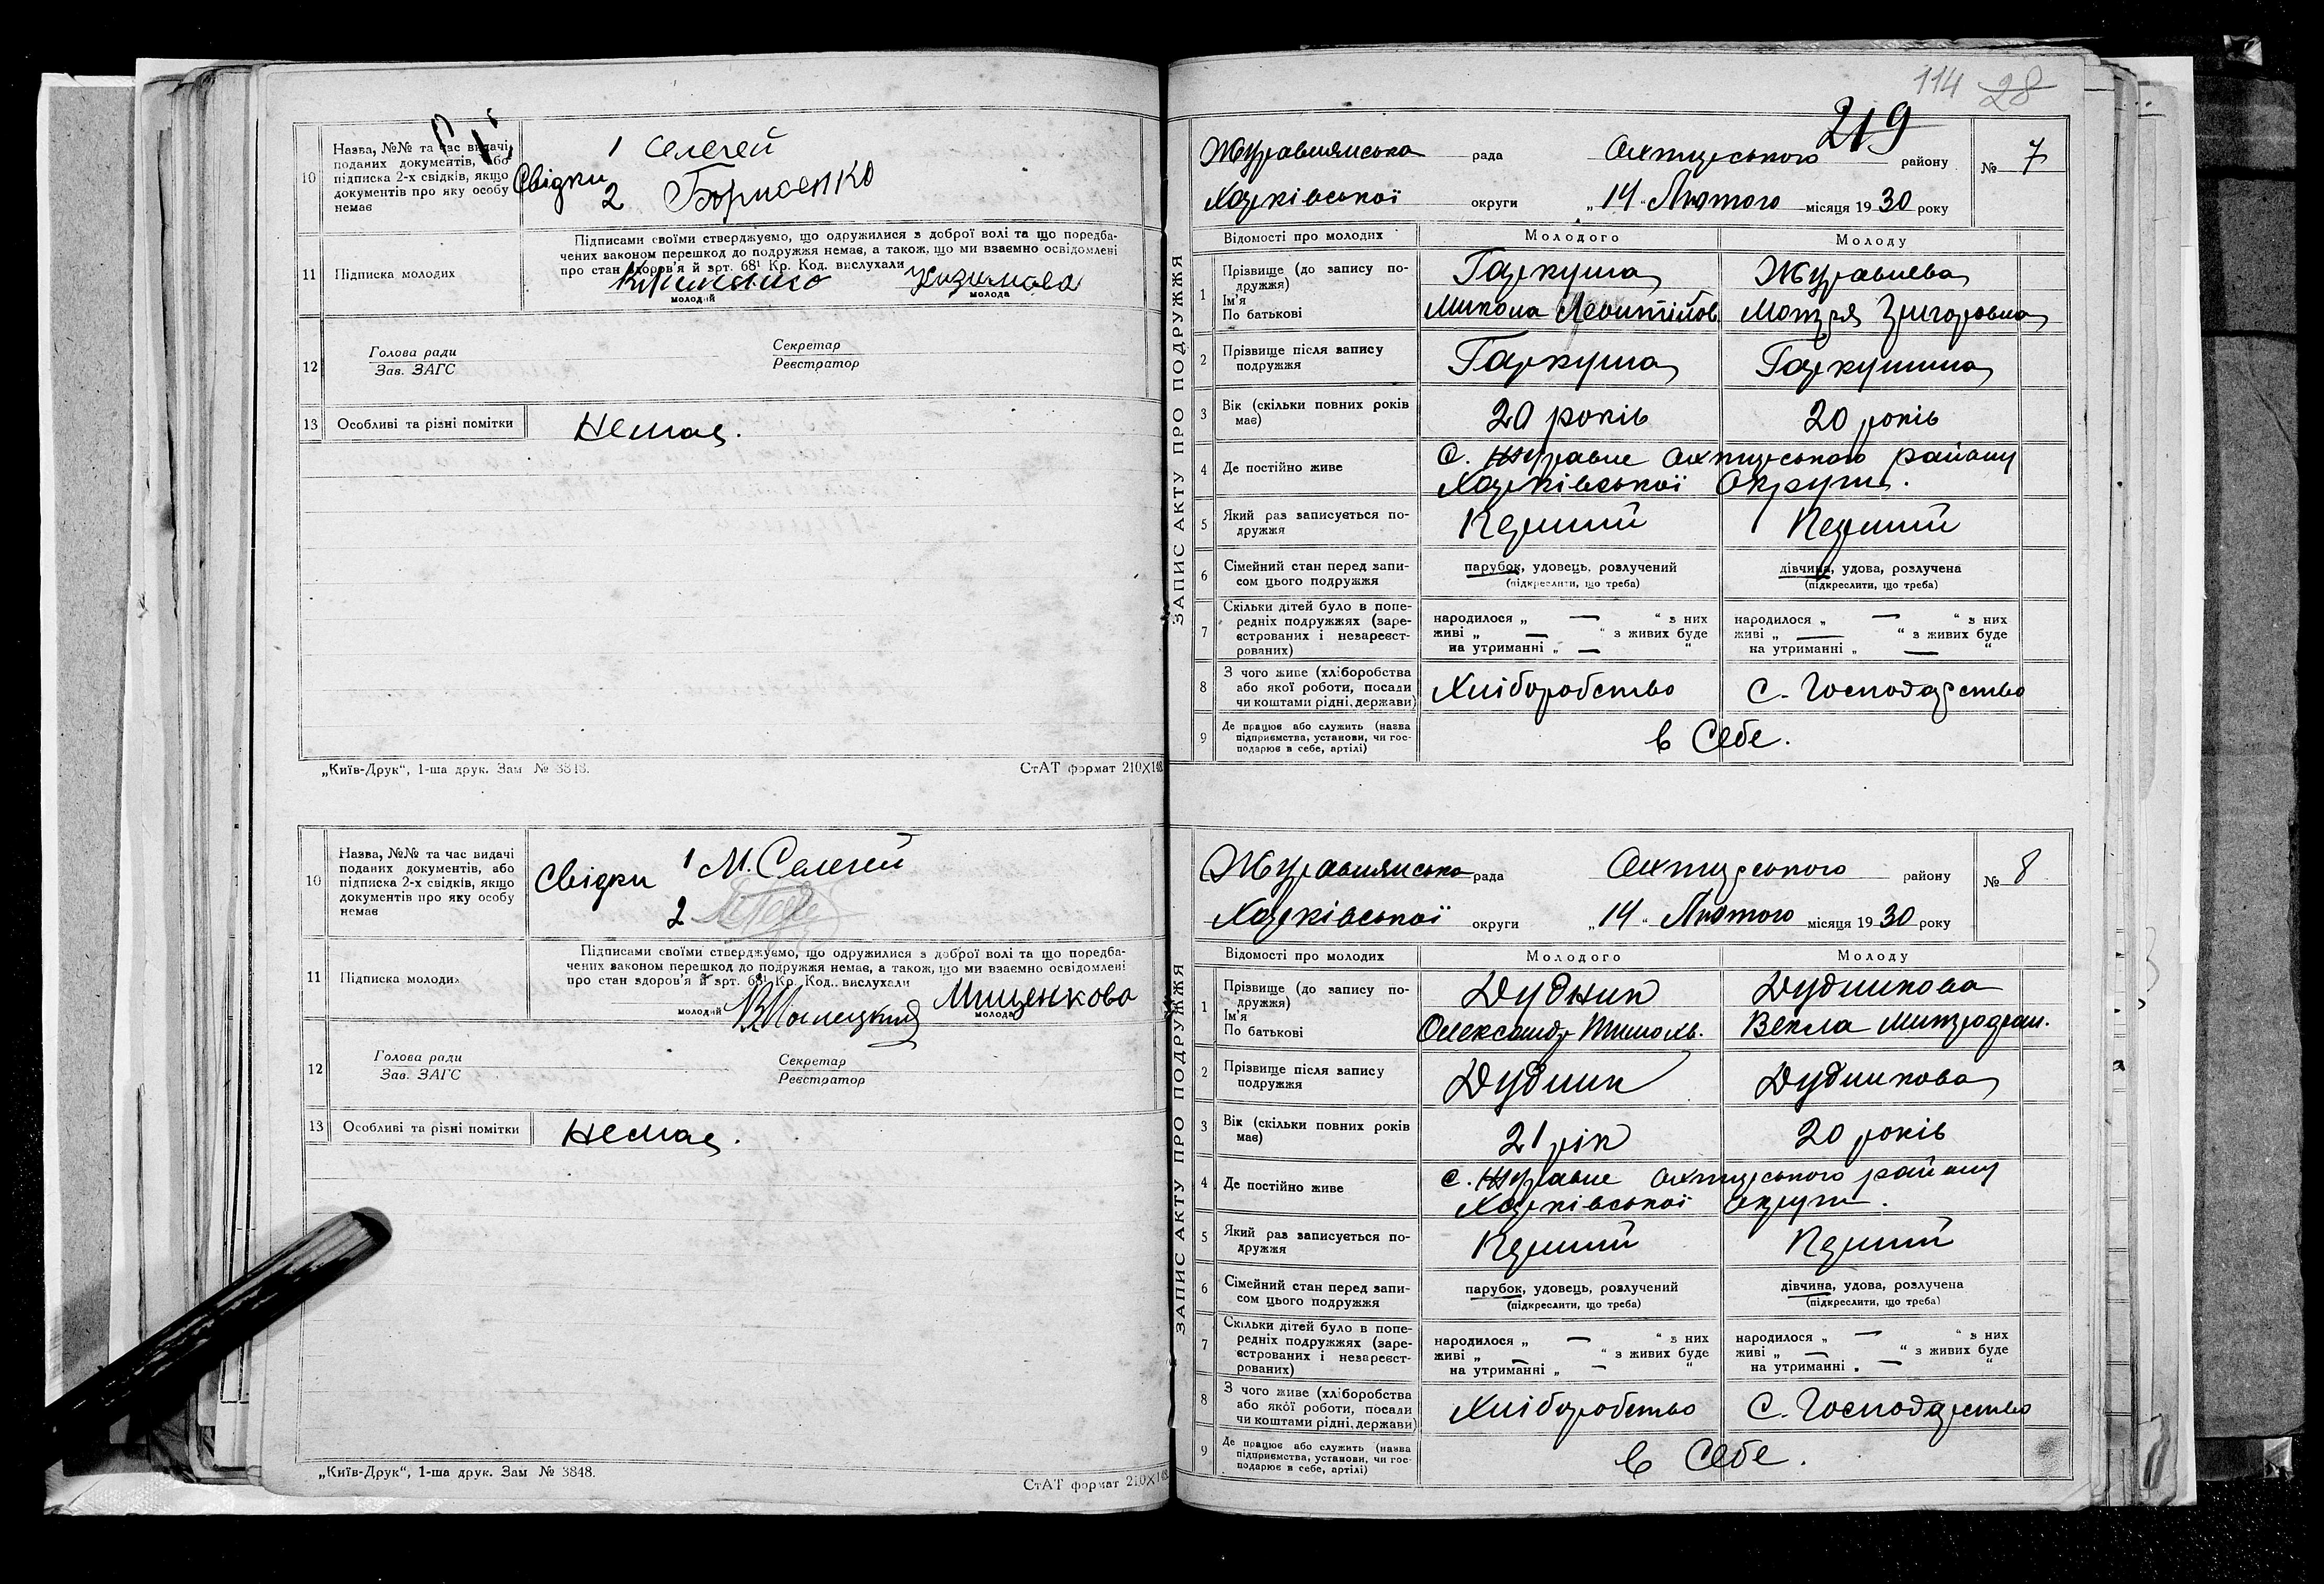 10 Назва, №№ та час видачі
поданих документів, або
підписка 2-х свідків, якщо
документів про яку особу
немає
Свідки
1 Селегей
2 Борисенко
11 Підписка молодих
Підписами своїми стверджуємо, що одружилися з доброї волі та що поредба-
чених законом перешкод до подружжя немає, а також, що ми взаємно освідомлені
про стан здоров'я й арт. 68¹ Кр. Код. вислухали
молодий
молода
12 Голова ради
Зав. ЗАГС
Секретар
Реєстратор
13 Особливі та різні помітки
Немає.
„Київ-Друк“, 1-ша друк. Зам № 3848.
СтАТ формат 210×148
10 Назва, №№ та час видачі
поданих документів, або
підписка 2-х свідків, якщо
документів про яку особу
немає
Свідки 1 М. Селегей
2
11 Підписка молодих
Підписами своїми стверджуємо, що одружилися з доброї волі та що поредба-
чених законом перешкод до подружжя немає, а також, що ми взаємно освідомлені
про стан здоров'я й арт. 68¹ Кр. Код. вислухали
молодий
Мищенкова
молода
12 Голова ради
Зав. ЗАГС
Секретар
Реєстратор
13 Особливі та різні помітки
Немає.
„Київ-Друк“, 1-ша друк. Зам № 3848.
СтАТ формат 210×148
114 28
219
ЗАПИС АКТУ ПРО ПОДРУЖЖЯ
Журавлянська рада Охтирського району № 7
Харківської округи „14“ Лютого місяця 1930 року
Відомості про молодих Молодого Молоду
1 Прізвище (до запису по-
дружжя)
Ім'я
По батькові
Гаркуша Журавлева
Микола Леонтійов. Мотря Григоровна
2 Прізвище після запису
подружжя
Гаркуша Гаркушина
3 Вік (скільки повних років
має)
20 років 20 років
4 Де постійно живе
с. Журавне Охтирського району
Харківської Округи.
5 Який раз записується по-
дружжя
Перший Перший
6 Сімейний стан перед запи-
сом цього подружжя
парубок, удовець, розлучений дівчина, удова, розлучена
(підкреслити, що треба) (підкреслити, що треба)
7 Скільки дітей було в попе-
редніх подружжях (заре-
єстрованих і незареєст-
рованих)
народилося „ — “ з них народилося „ — “ з них
живі „ — “ з живих буде живі „ — “ з живих буде
на утриманні „ — “ на утриманні „ — “
8 З чого живе (хліборобства
або якої роботи, посади
чи коштами рідні, держави)
Хліборобство С. Господарство
9 Де працює або служить (назва
підприємства, установи, чи гос-
подарює в себе, артілі)
в Себе.
ЗАПИС АКТУ ПРО ПОДРУЖЖЯ
Журавлянська рада Охтирського району № 8
Харківської округи „14“ Лютого місяця 1930 року
Відомості про молодих Молодого Молоду
1 Прізвище (до запису по-
дружжя)
Ім'я
По батькові
Дудник Дудникова
Олександр Тимохв. Векла Митрофан.
2 Прізвище після запису
подружжя
Дудник Дудникова
3 Вік (скільки повних років
має)
21 рік 20 років
4 Де постійно живе
с. Журавне Охтирського району
Харківської округи.
5 Який раз записується по-
дружжя
Перший Перший
6 Сімейний стан перед запи-
сом цього подружжя
парубок, удовець, розлучений дівчина, удова, розлучена
(підкреслити, що треба) (підкреслити, що треба)
7 Скільки дітей було в попе-
редніх подружжях (заре-
єстрованих і незареєст-
рованих)
народилося „ — “ з них народилося „ — “ з них
живі „ — “ з живих буде живі „ — “ з живих буде
на утриманні „ — “ на утриманні „ — “
8 З чого живе (хліборобства
або якої роботи, посади
чи коштами рідні, держави)
Хліборобство С. Господарство
9 Де працює або служить (назва
підприємства, установи, чи гос-
подарює в себе, артілі)
в Себе.